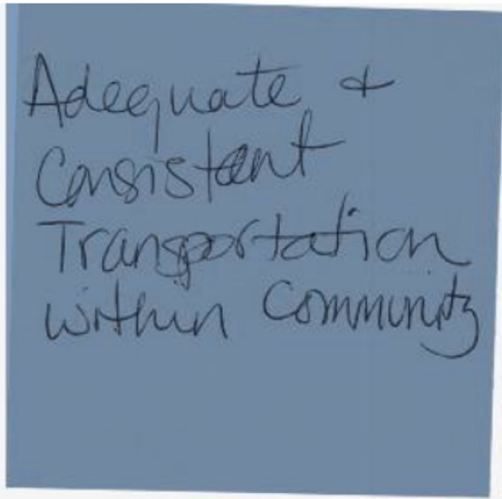 Adequate +
Consistent
Transportation
within Community